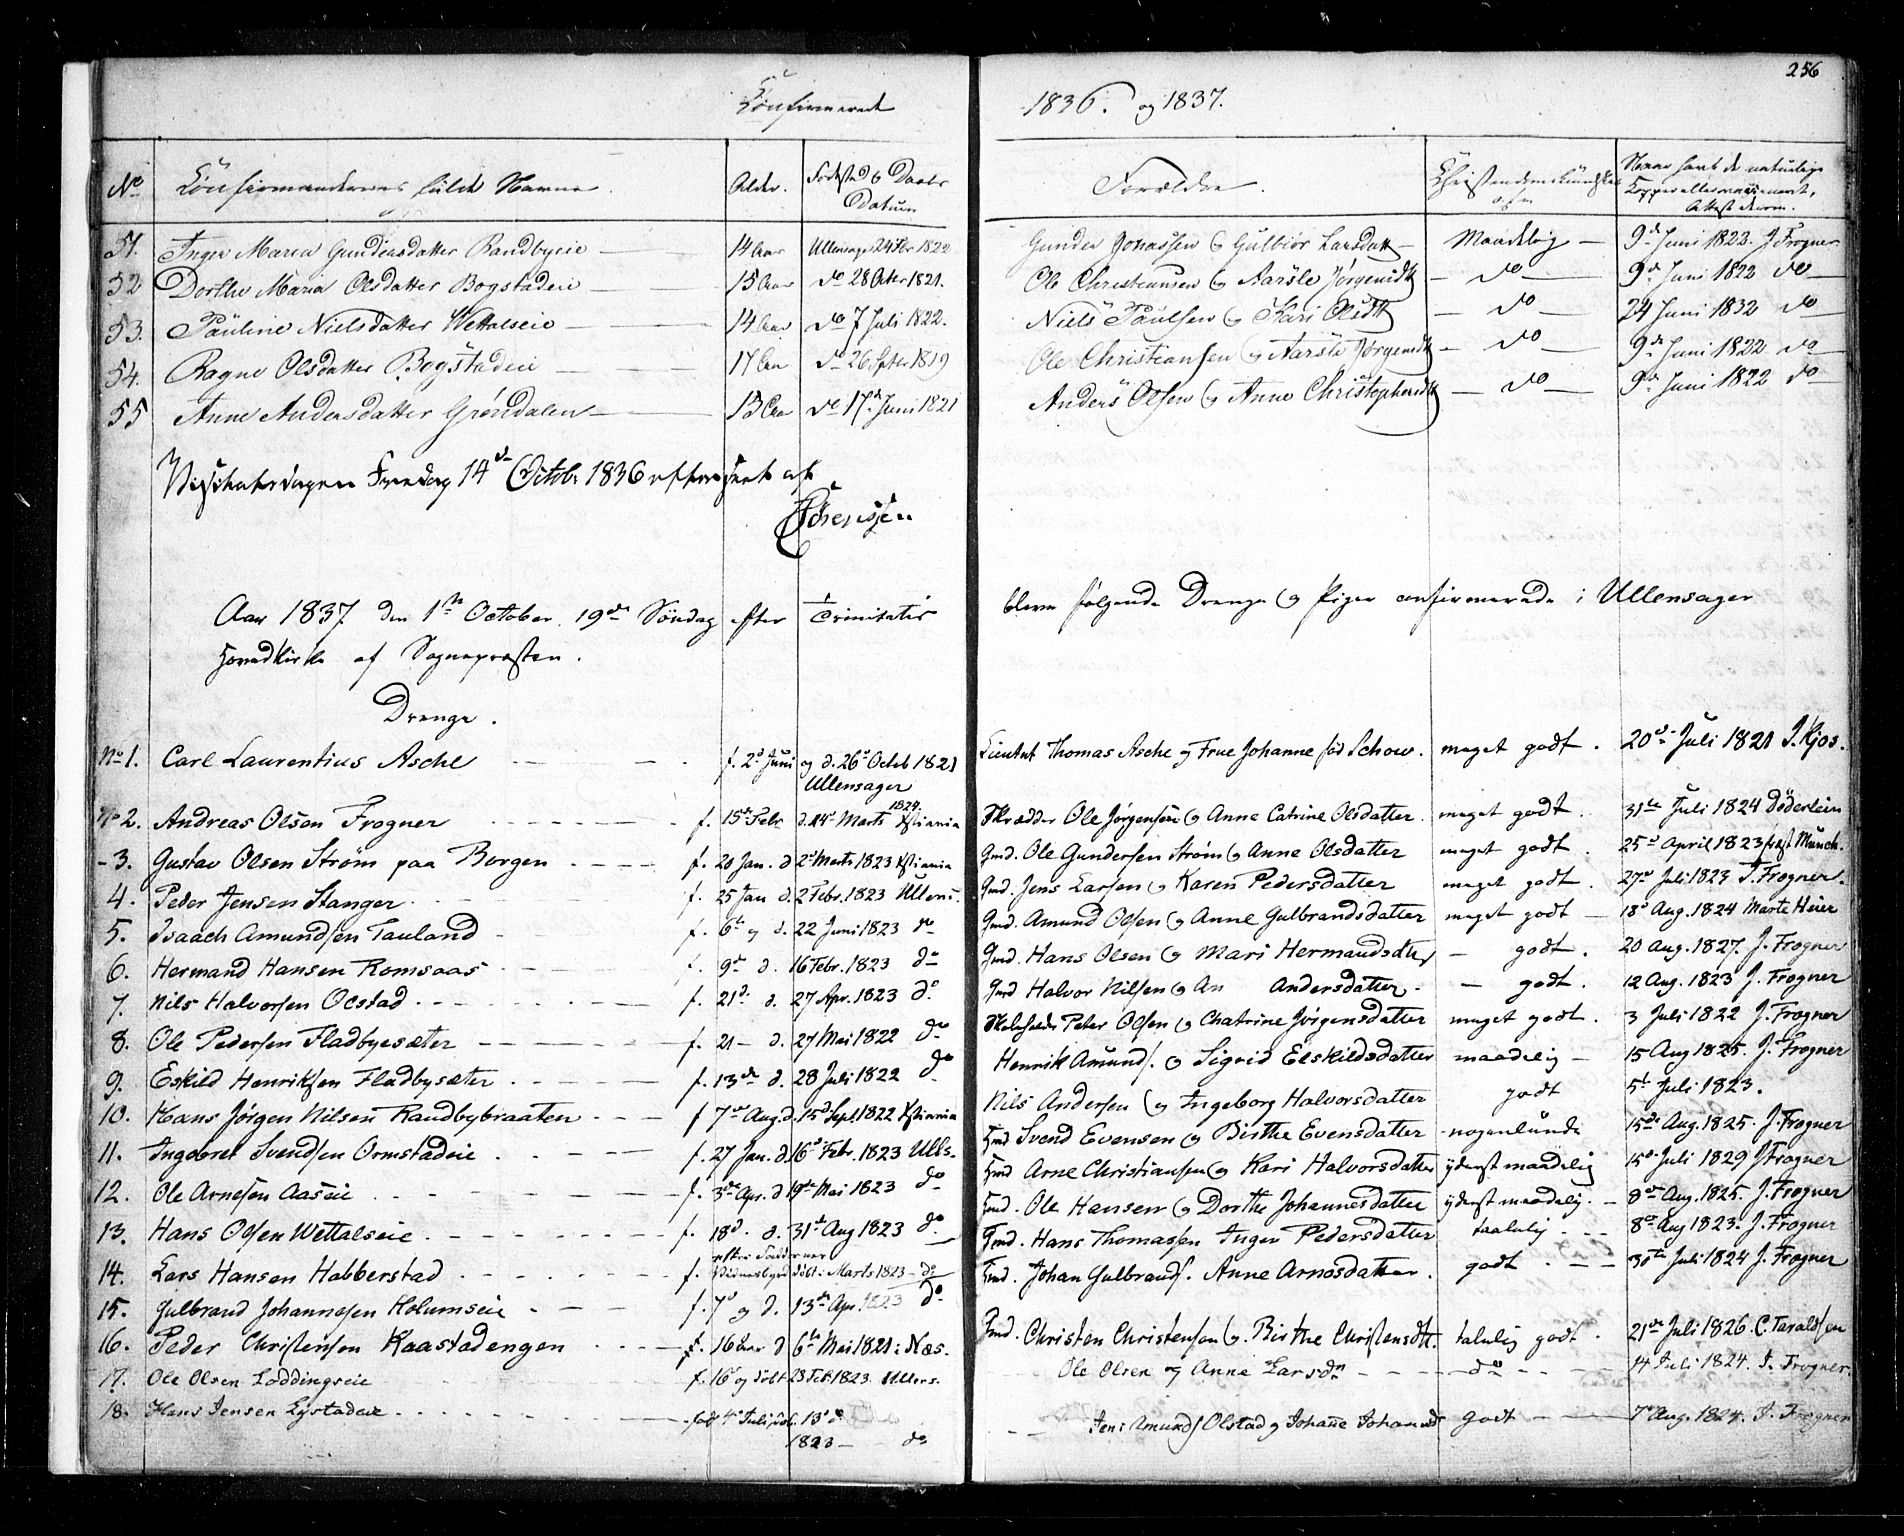 256
Confirmerede 1836. og 1837.
No Confirmandernes fulde Navne. Alder. Fødested & Daabs Datum Forældre. Christendomskundskab Naar havt de naturlige Kopper eller vaccineret, Attest derom.
51. Inger Maria Gundersdatter Randbyeie 14 Aar Ullensager 24 Febr 1822 Gunder Johassen & Gulbiør Larsdatt Maadelig 9de Juni 1822. J Frogner
52 Dorthe Maria Olsdatter Bogstadeie 15 Aar do 28 Octbr 1821. Ole Christiansen & Aarsle Jørgensdtt do 9de Juni 1822 do
53. Pauline Nielsdatter Wettalseie 14 Aar do 7 Juli 1822. Niels Paulsen & Kari Olsdtt do 24 Juni 1832 do
54. Ragne Olsdatter Bogstadeie 17 Aar do 26 Septbr 1819 Ole Christiansen & Aarsle Jørgensdtt do 9de Juni 1822 do
55 Anne Andersdatter Grøndalen 15 Aar do 17de Juni 1821 Anders Olsen & Anne Christophersdtt do 9de Juni 1822 do
Visitatsdagen Fredag 14de Octobr 1836 efterseet af
Sørenssen
Aar 1837 den 1ste October 19de Søndag efter Trinitatis bleve følgende Drenge & Piger confirmerede i Ullensager
Hovedkirke af Sognepræsten.
Drenge.
No 1. Carl Laurentius Asche f. 2d Juni og d. 26d Octob 1821 Lieutnt Thomas Asche og Frue Johanne fød Schow. meget godt. 20de Juli 1821 J. Kjos.
Ullensager
No 2. Andreas Olsen Frogner f. 15de Febr d. 14d Marts 1824. Xstiania Skrædder Ole Jørgensen & Anne Catrine Olsdatter. meget godt. 31te Juli 1824 Døderlein
- 3. Gustav Olsen Strøm paa Borgen f. 20 Jan. d 2d Marts 1823 Xstiania Gmd. Ole Gundersen Strøm & Anne Olsdatter meget godt. 25d April 1823 prst Munch.
4. Peder Jensen Stanger f. 25 Jan d. 2 Febr. 1823 Ullens. Gmd. Jens Larsen & Karen Pedersdatter meget godt. 27d Juli 1823 J. Frogner.
5. Isaach Amundsen Tauland f. 6te og d. 22 Juni 1823 do Gmd. Amund Olsen & Anne Gulbrandsdatter meget godt 18d Aug. 1824 Marte Heier
6. Hermand Hansen Romsaas f. 9de d. 16 Febr. 1823 do Gmd. Hans Olsen & Mari Hermandsdtr godt. 20 Aug. 1827. J. Frogner
7. Nils Halvorsen Olstad f. 21d. d. 27 Apr. 1823 do Gmd Halvor Nilsen & An Andersdatter. godt. 12 Aug. 1823 J. Frogner
8. Ole Pedersen Fladbyesæter f. 21 d. 27 Mai 1822 do Skoleholdr Peter Olsen & Chatrine Jörgensdatter meget godt. 3 Juli 1822 J. Frogner
9. Eskild Henriksen Fladbysæter f. 13de d. 28 Juli 1822 do Henrik Amunds. & Sigrid Elskildsdatter maadelig 15 Aug 1825. J. Frogner
10. Hans Jørgen Nilsen Randbybraaten f 7de Aug. d. 15d Sept. 1822 Xstiania Nils Andersen & Ingeborg Halvorsdatter godt 5t Juli 1823.
11. Ingebret Svendsen Ormstadeie f. 27 Jan. d. 16d Febr. 1823 Ulls. Gmd Svend Evensen & Birthe Evensdatter nogenlunde 15de Aug. 1825. J. Frogner
12. Ole Arnesen Aaseie f. 3de Apr. d 19de Mai 1823 do Gmd Arne Christiansen & Kari Halvorsdatter yderst maadelig 15d Juli 1829 J Frogner
13. Hans Olsen Wettalseie f. 18d. d. 31te Aug 1823 do Gmd. Ole Hansen & Dorthe Johannesdatter yderst maadelig. 8de Aug. 1825. J. Frogner
14. Lars Hansen Habberstad f. døbt i Marts 1823 do Gmd. Hans Thomassen Inger Pedersdatter taalelig 8de Aug 1823. J. Frogner
15. Gulbrand Johannesen Holumseie f. 7d og d. 13de Apr 1823 do Gmd. Johan Gulbrands. Anne Arnesdatter. godt. 30te Juli 1824 J. Frogner
16. Peder Christensen Kaastadengen f. 16 Mar d 6te Mai 1821 i Næs. Gmd. Christen Christensen & Birthe Christensdtt. talelig godt. 21de Juli 1826. C. Taraldsen
17. Ole Olsen Loddingseie f. 16d og døbt 23 Feb 1823 Ullens. Ole Olsen og Anne Larsdr do 14 Juli 1824. J. Frogner.
18. Hans Jensen Lystadeie født 4de Juli døbt. 13d Jens Amunds Olstad og Johane Johansdt godt 7d Aug. 1824. J. Frogner
1823 do